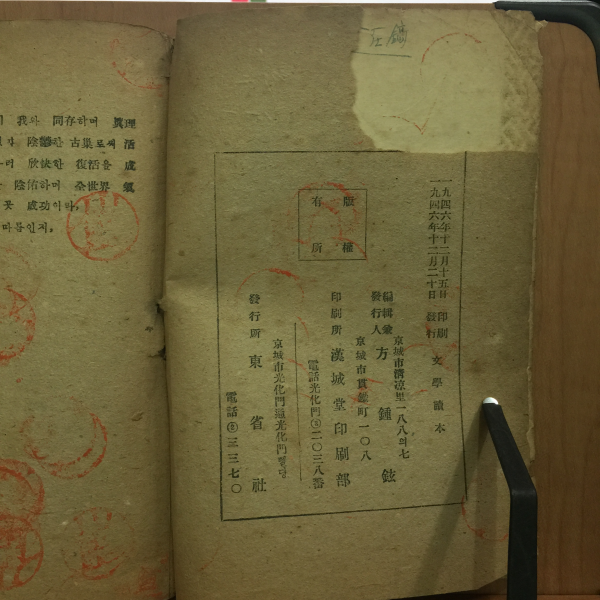 我와 同存하며 眞理
陰鬱한 古巢로써 活
欣快한 復活을 成
하며 全世界 氣
成功이라,
따름인저,
版權
有所
一九四六年十二月十五日 印刷
一九四六年十二月二十日 發行
文學讀本
京城市淸凉里一八八의七
編輯兼
發行人 方鍾鉉
京城市貫鐵町一〇八
印刷所 漢城堂印刷部
電話光化門③二〇三八番
京城市光化門通光化門빌딩
發行所 東省社
電話②三三七〇